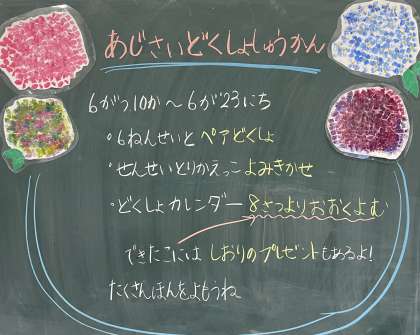 あじさいどくしょしゅうかん
6がつ10か～6がつ23にち
・6ねんせいとペアどくしょ
・せんせいとりかえっこよみきかせ
・どくしょカレンダー 8さつよりおおくよむ
できたこには しおりのプレゼントもあるよ!
たくさんほんをよもうね